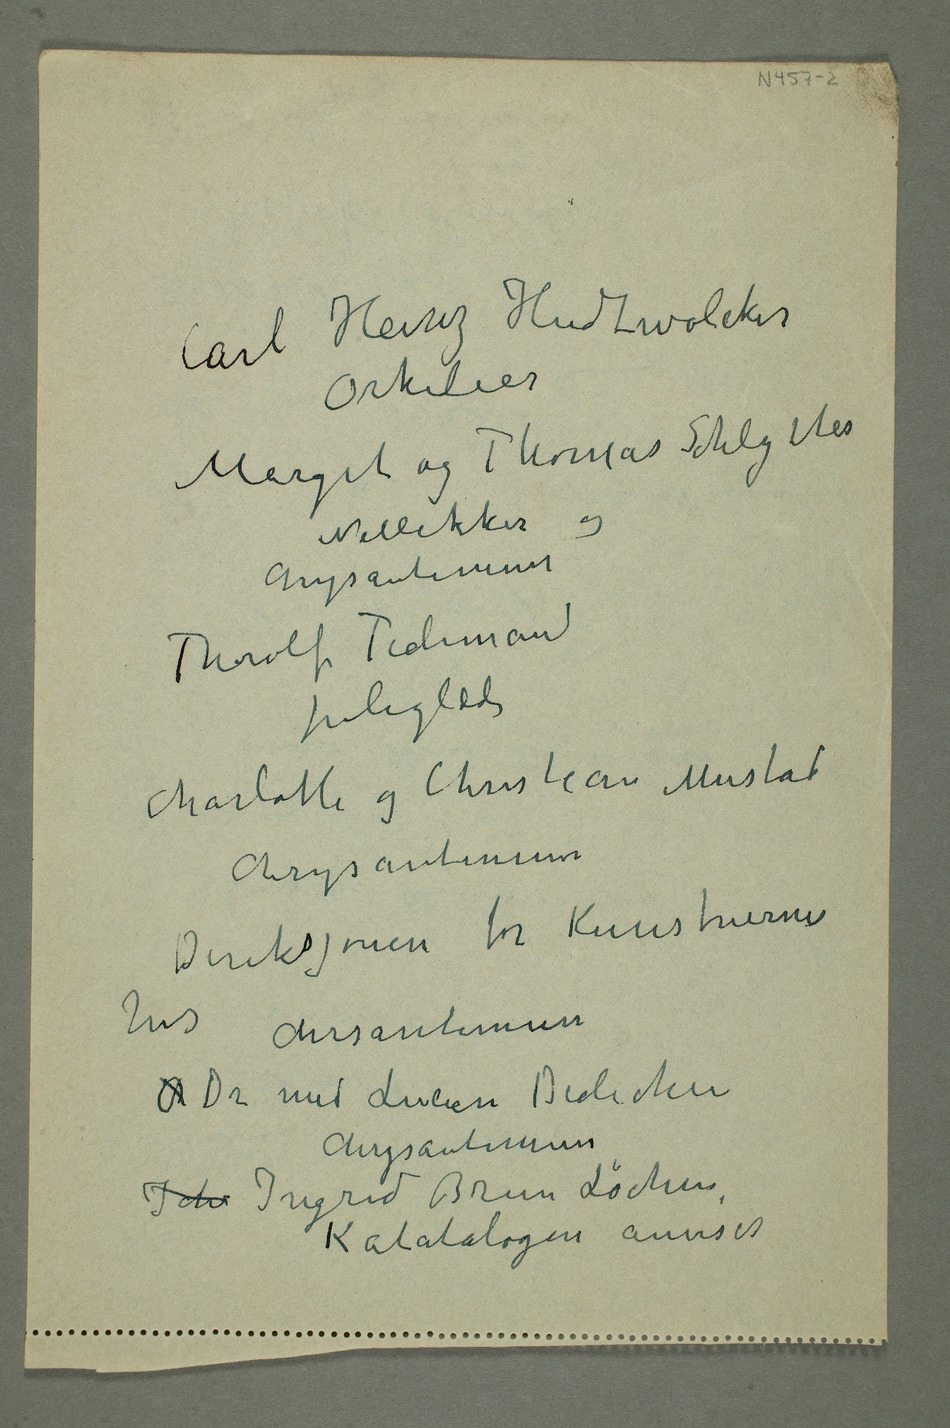 N457-2
Carl Heinz Hudtwalcker
Orkideer
Margit og Thomas Schlyttes
Nellikker og
Chrysantemum
Thorolf Tidemand
juleglæde
Charlotte og Christian Mustad
Chrysantemum
Direksjonen for Kunstnernes
hus chrsantemum
Dr med Lucien Dedichen
Chrysantemum
Ingrid Brun Løchen,
Katatalogen anvises